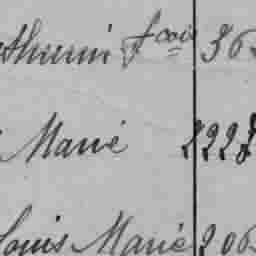 thurin fcois 36
Marié 222
Louis Marié 206